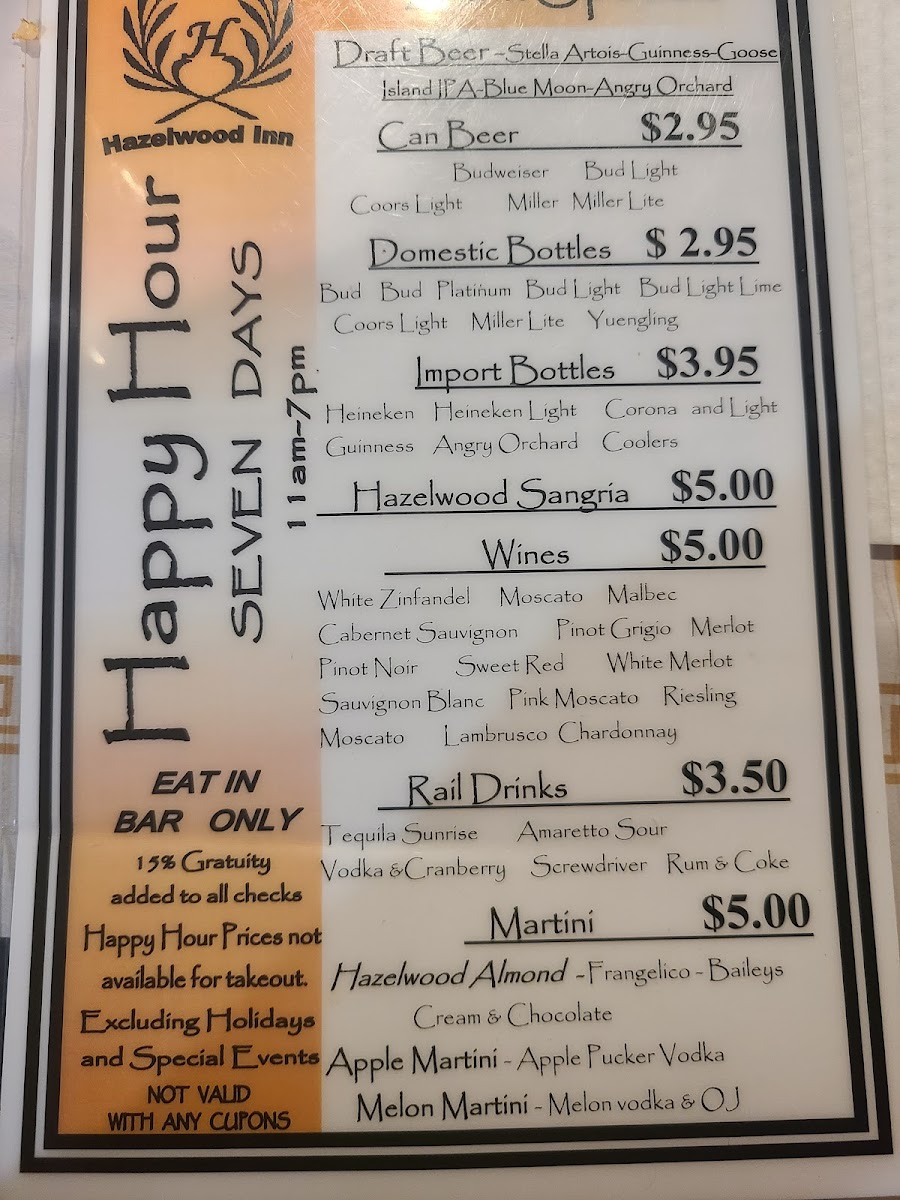 H
Hazelwood Inn
Happy Hour
SEVEN DAYS
11am-7pm
EAT IN
BAR ONLY
15% Gratuity
added to all checks
Happy Hour Prices not
available for takeout.
Excluding Holidays
and Special Events
NOT VALID
WITH ANY CUPONS
Draft Beer - Stella Artois-Guinness-Goose
Island IPA-Blue Moon-Angry Orchard
Can Beer $2.95
Budweiser Bud Light
Coors Light Miller Miller Lite
Domestic Bottles $ 2.95
Bud Bud Platinum Bud Light Bud Light Lime
Coors Light Miller Lite Yuengling
Import Bottles $3.95
Heineken Heineken Light Corona and Light
Guinness Angry Orchard Coolers
Hazelwood Sangria $5.00
Wines $5.00
White Zinfandel Moscato Malbec
Cabernet Sauvignon Pinot Grigio Merlot
Pinot Noir Sweet Red White Merlot
Sauvignon Blanc Pink Moscato Riesling
Moscato Lambrusco Chardonnay
Rail Drinks $3.50
Tequila Sunrise Amaretto Sour
Vodka &Cranberry Screwdriver Rum & Coke
Martini $5.00
Hazelwood Almond - Frangelico - Baileys
Cream & Chocolate
Apple Martini - Apple Pucker Vodka
Melon Martini - Melon vodka & OJ